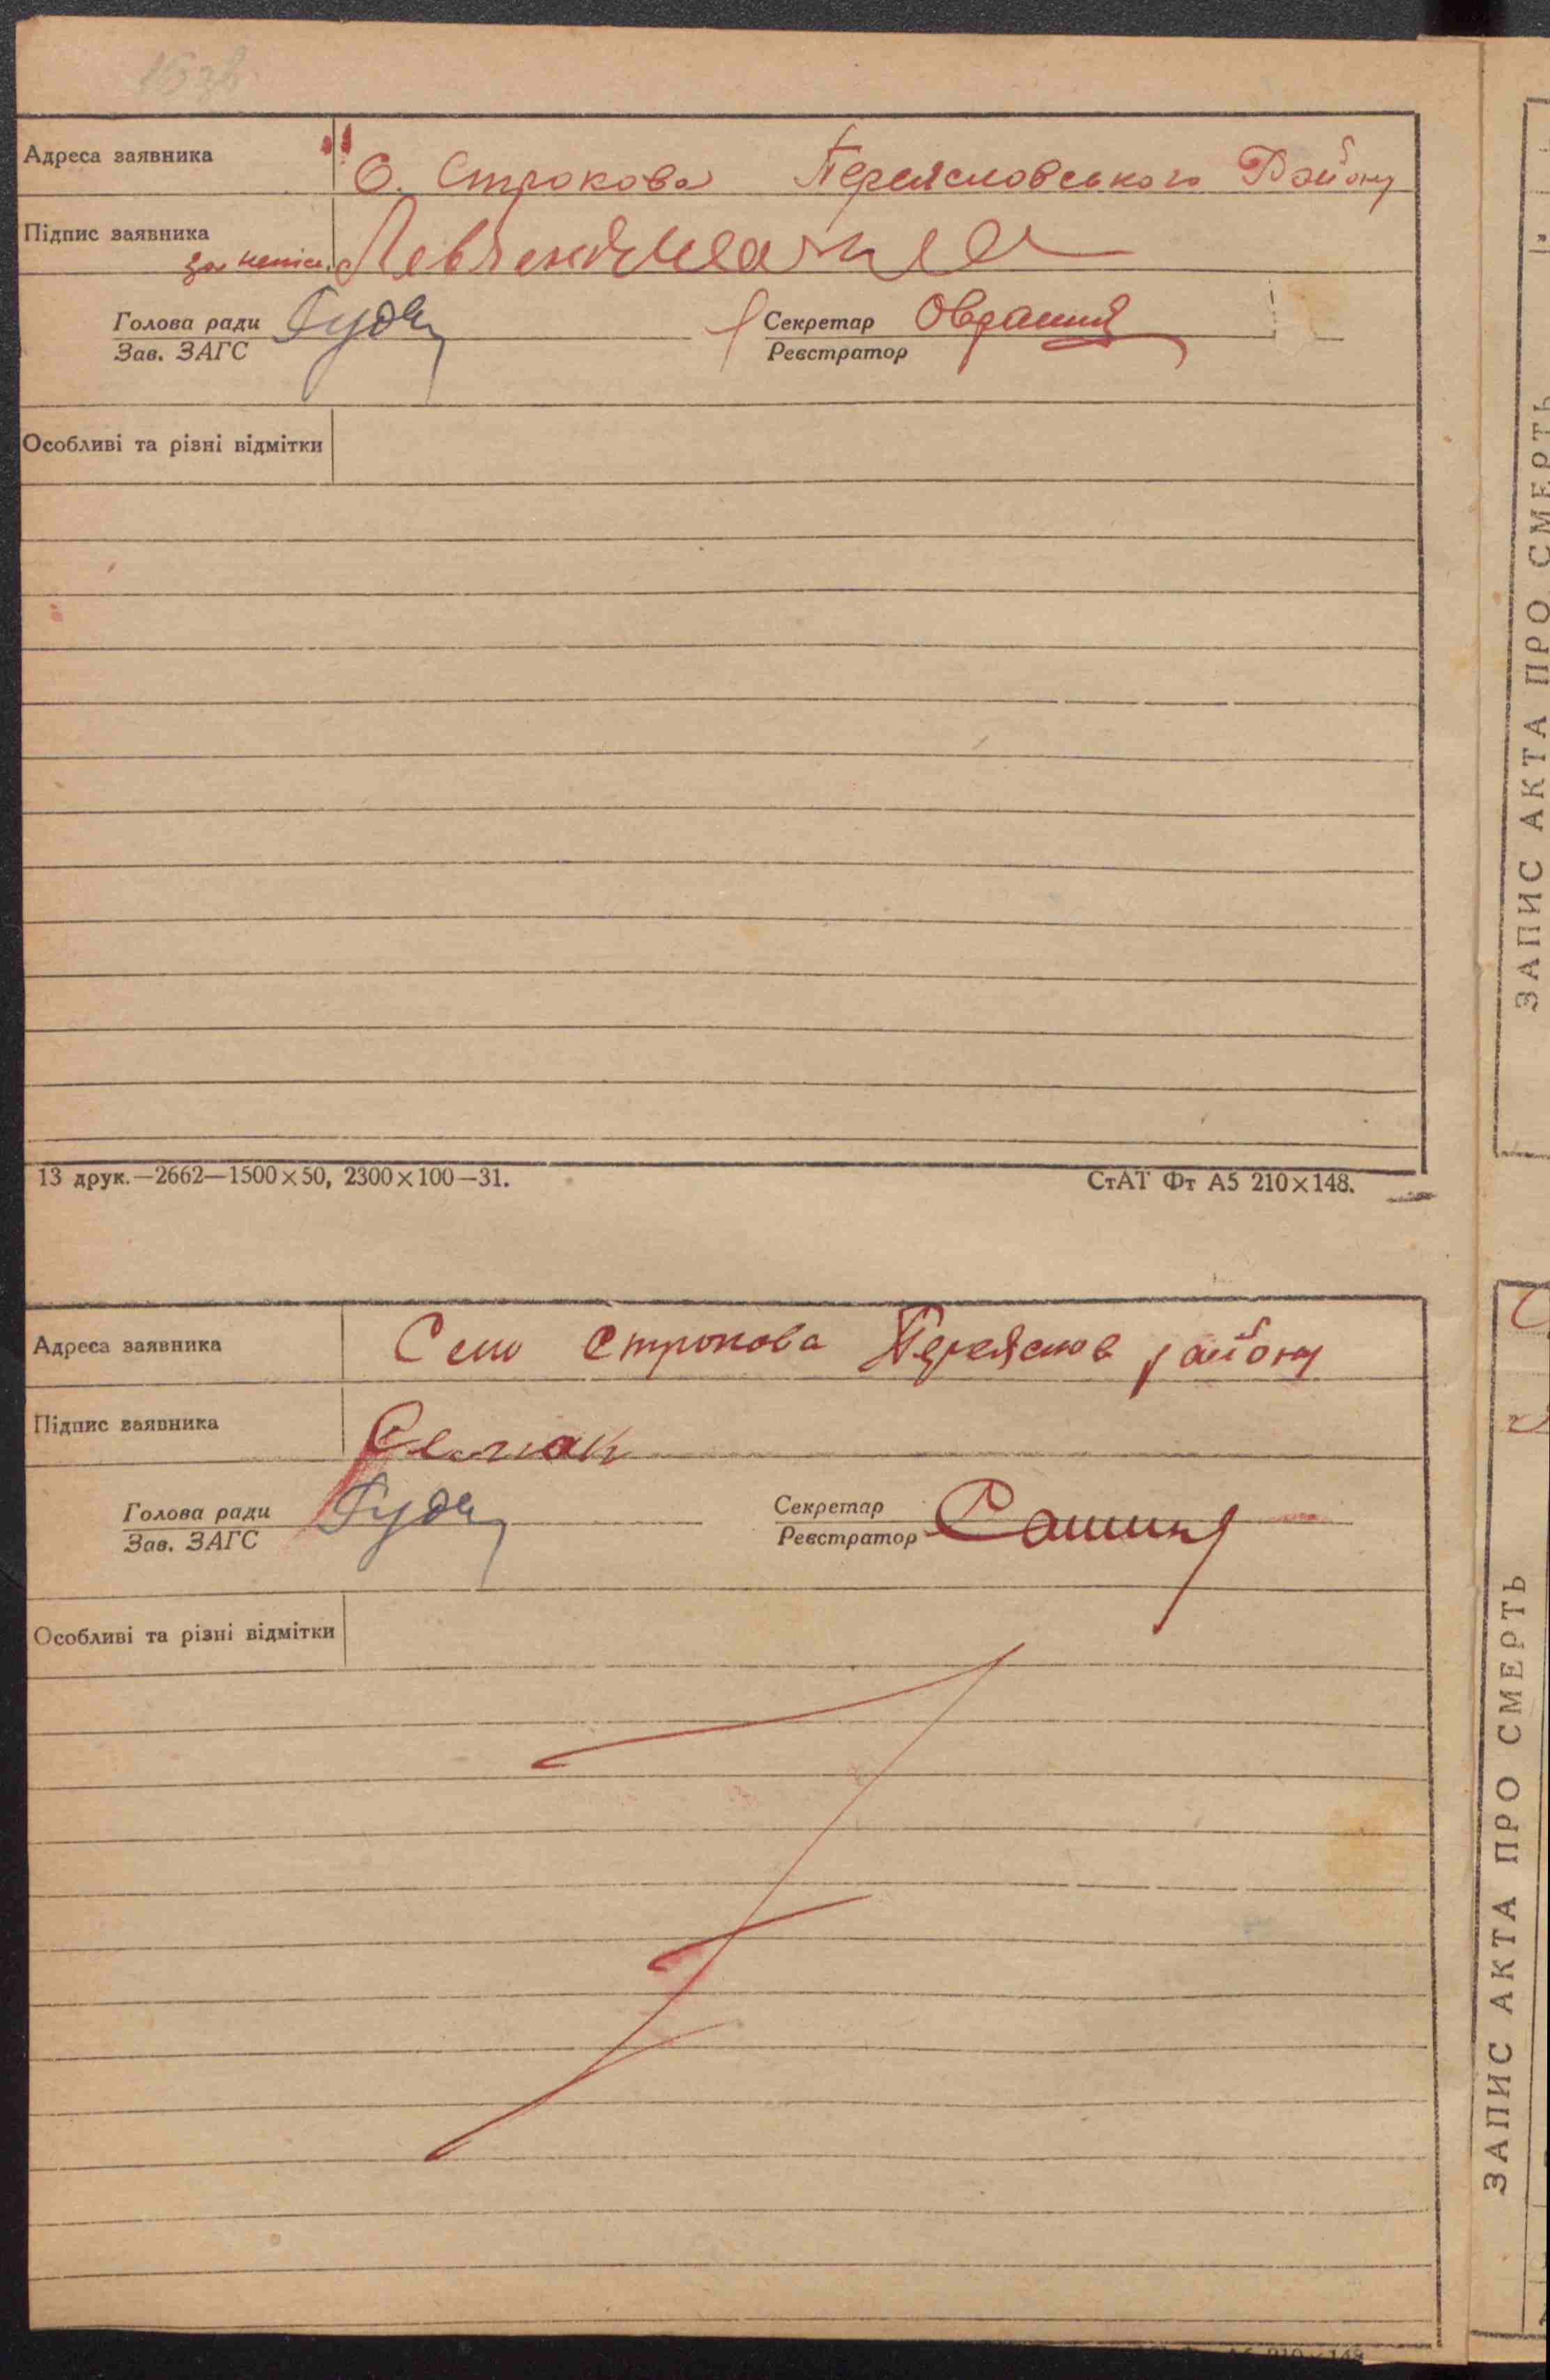 16 зв
Адреса заявника С. Строкова Переясловського Району
Підпис заявника
за непис.
Голова ради Секретар
Зав. ЗАГС Реєстратор
Особливі та різні відмітки
13 друк.—2662—1500×50, 2300×100—31. СтАТ Фт А5 210×148.
Адреса заявника Село Строкова Переяслов району
Підпис заявника
Голова ради Секретар
Зав. ЗАГС Реєстратор
Особливі та різні відмітки
ЗАПИС АКТА ПРО СМЕРТЬ
ЗАПИС АКТА ПРО СМЕРТЬ